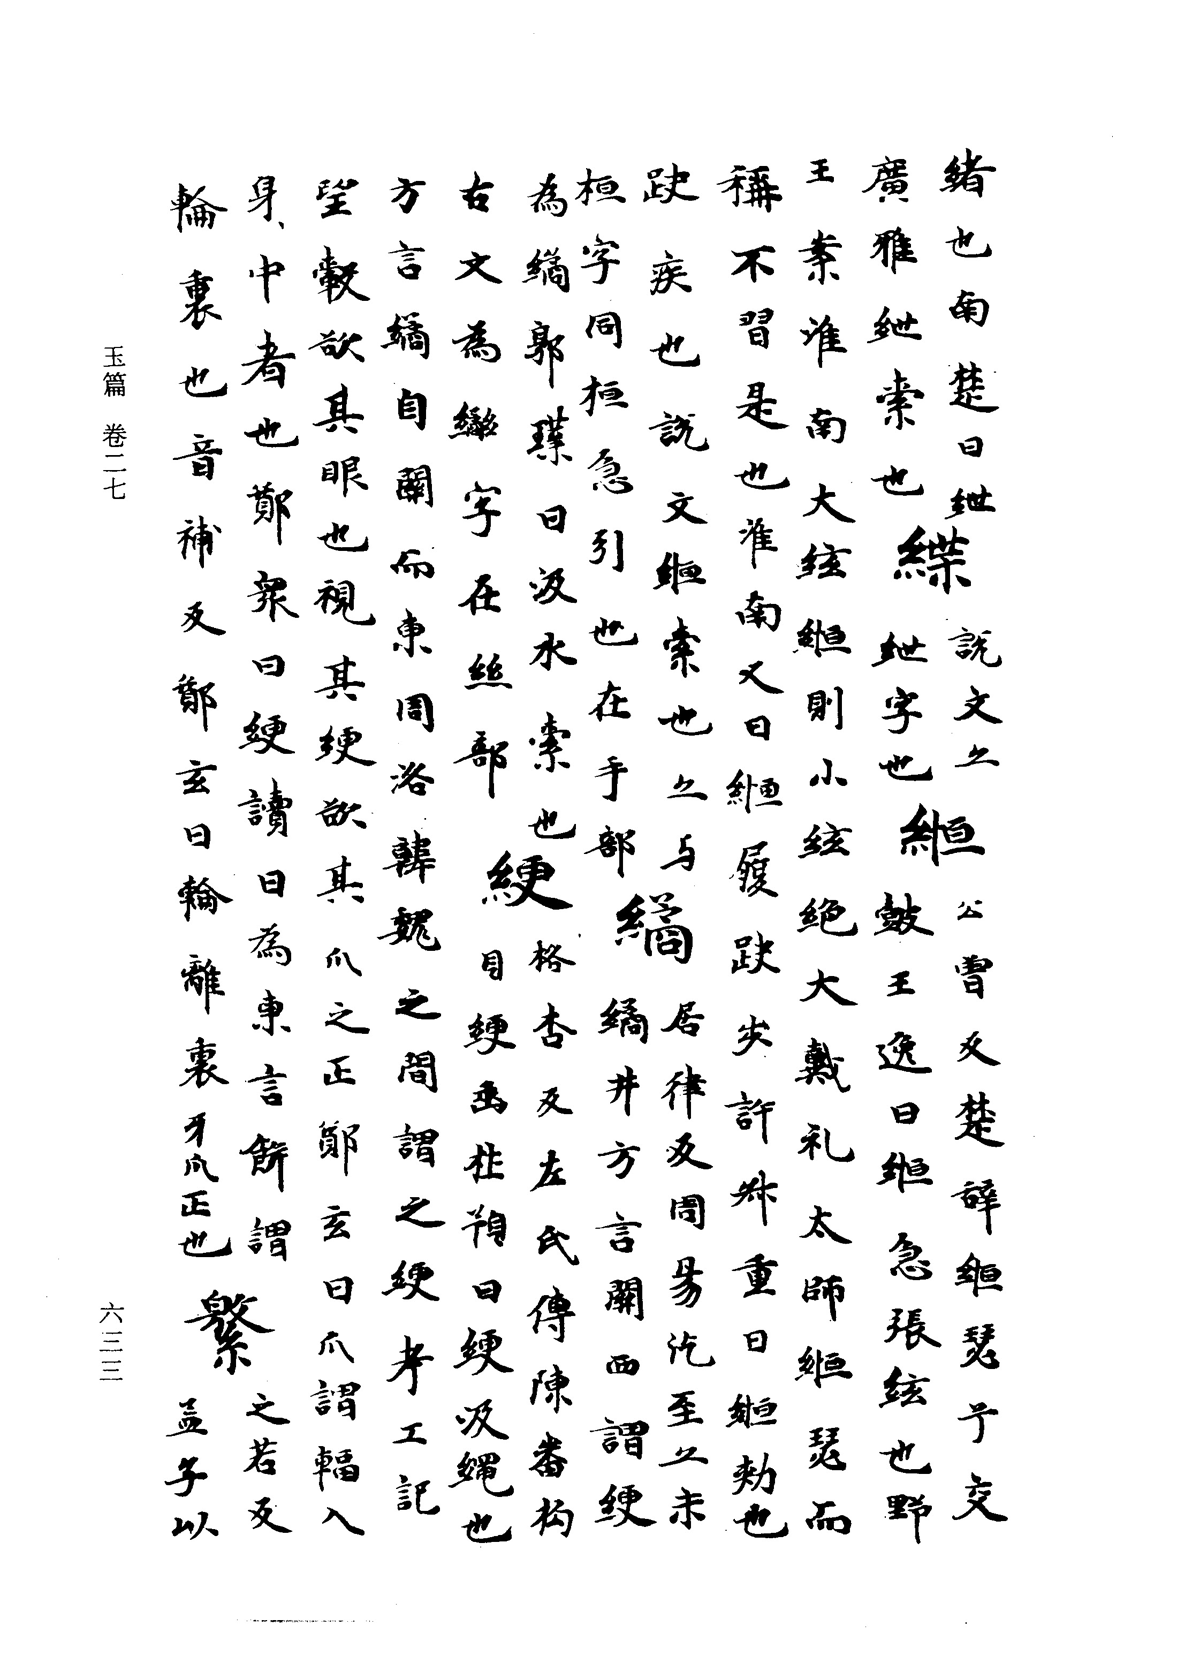 緒也南楚曰紲
廣雅紲索也緤說文亦
紲字也縆公曾反楚辭縆瑟兮交
鼓王逸曰縆急張絃也野
王案淮南大絃縆則小絃絶大戴礼太師縆瑟而
稱不習是也淮南又曰縆履趹步許叔重曰縆勑也
趹疾也說文縆索也亦与
桓字同桓急引也在手部繘居律反周易汔至亦未
繘井方言關西謂綆
為繘郭璞曰汲水索也
右文為字在絲部綆格杏反左氏傳陳畚挶
具綆缶杜預曰綆汲繩也
方言繘自關而東周洛韓魏之間謂之綆考工記
望轂欲其眼也視其綆欲其爪之正鄭玄曰爪謂輻入
身中者也鄭眾曰綆讀曰為東言餅謂
輪裏也音補反鄭玄曰輪離裏牙爪正也繁之若反
孟子以
玉篇 卷二七
六三三